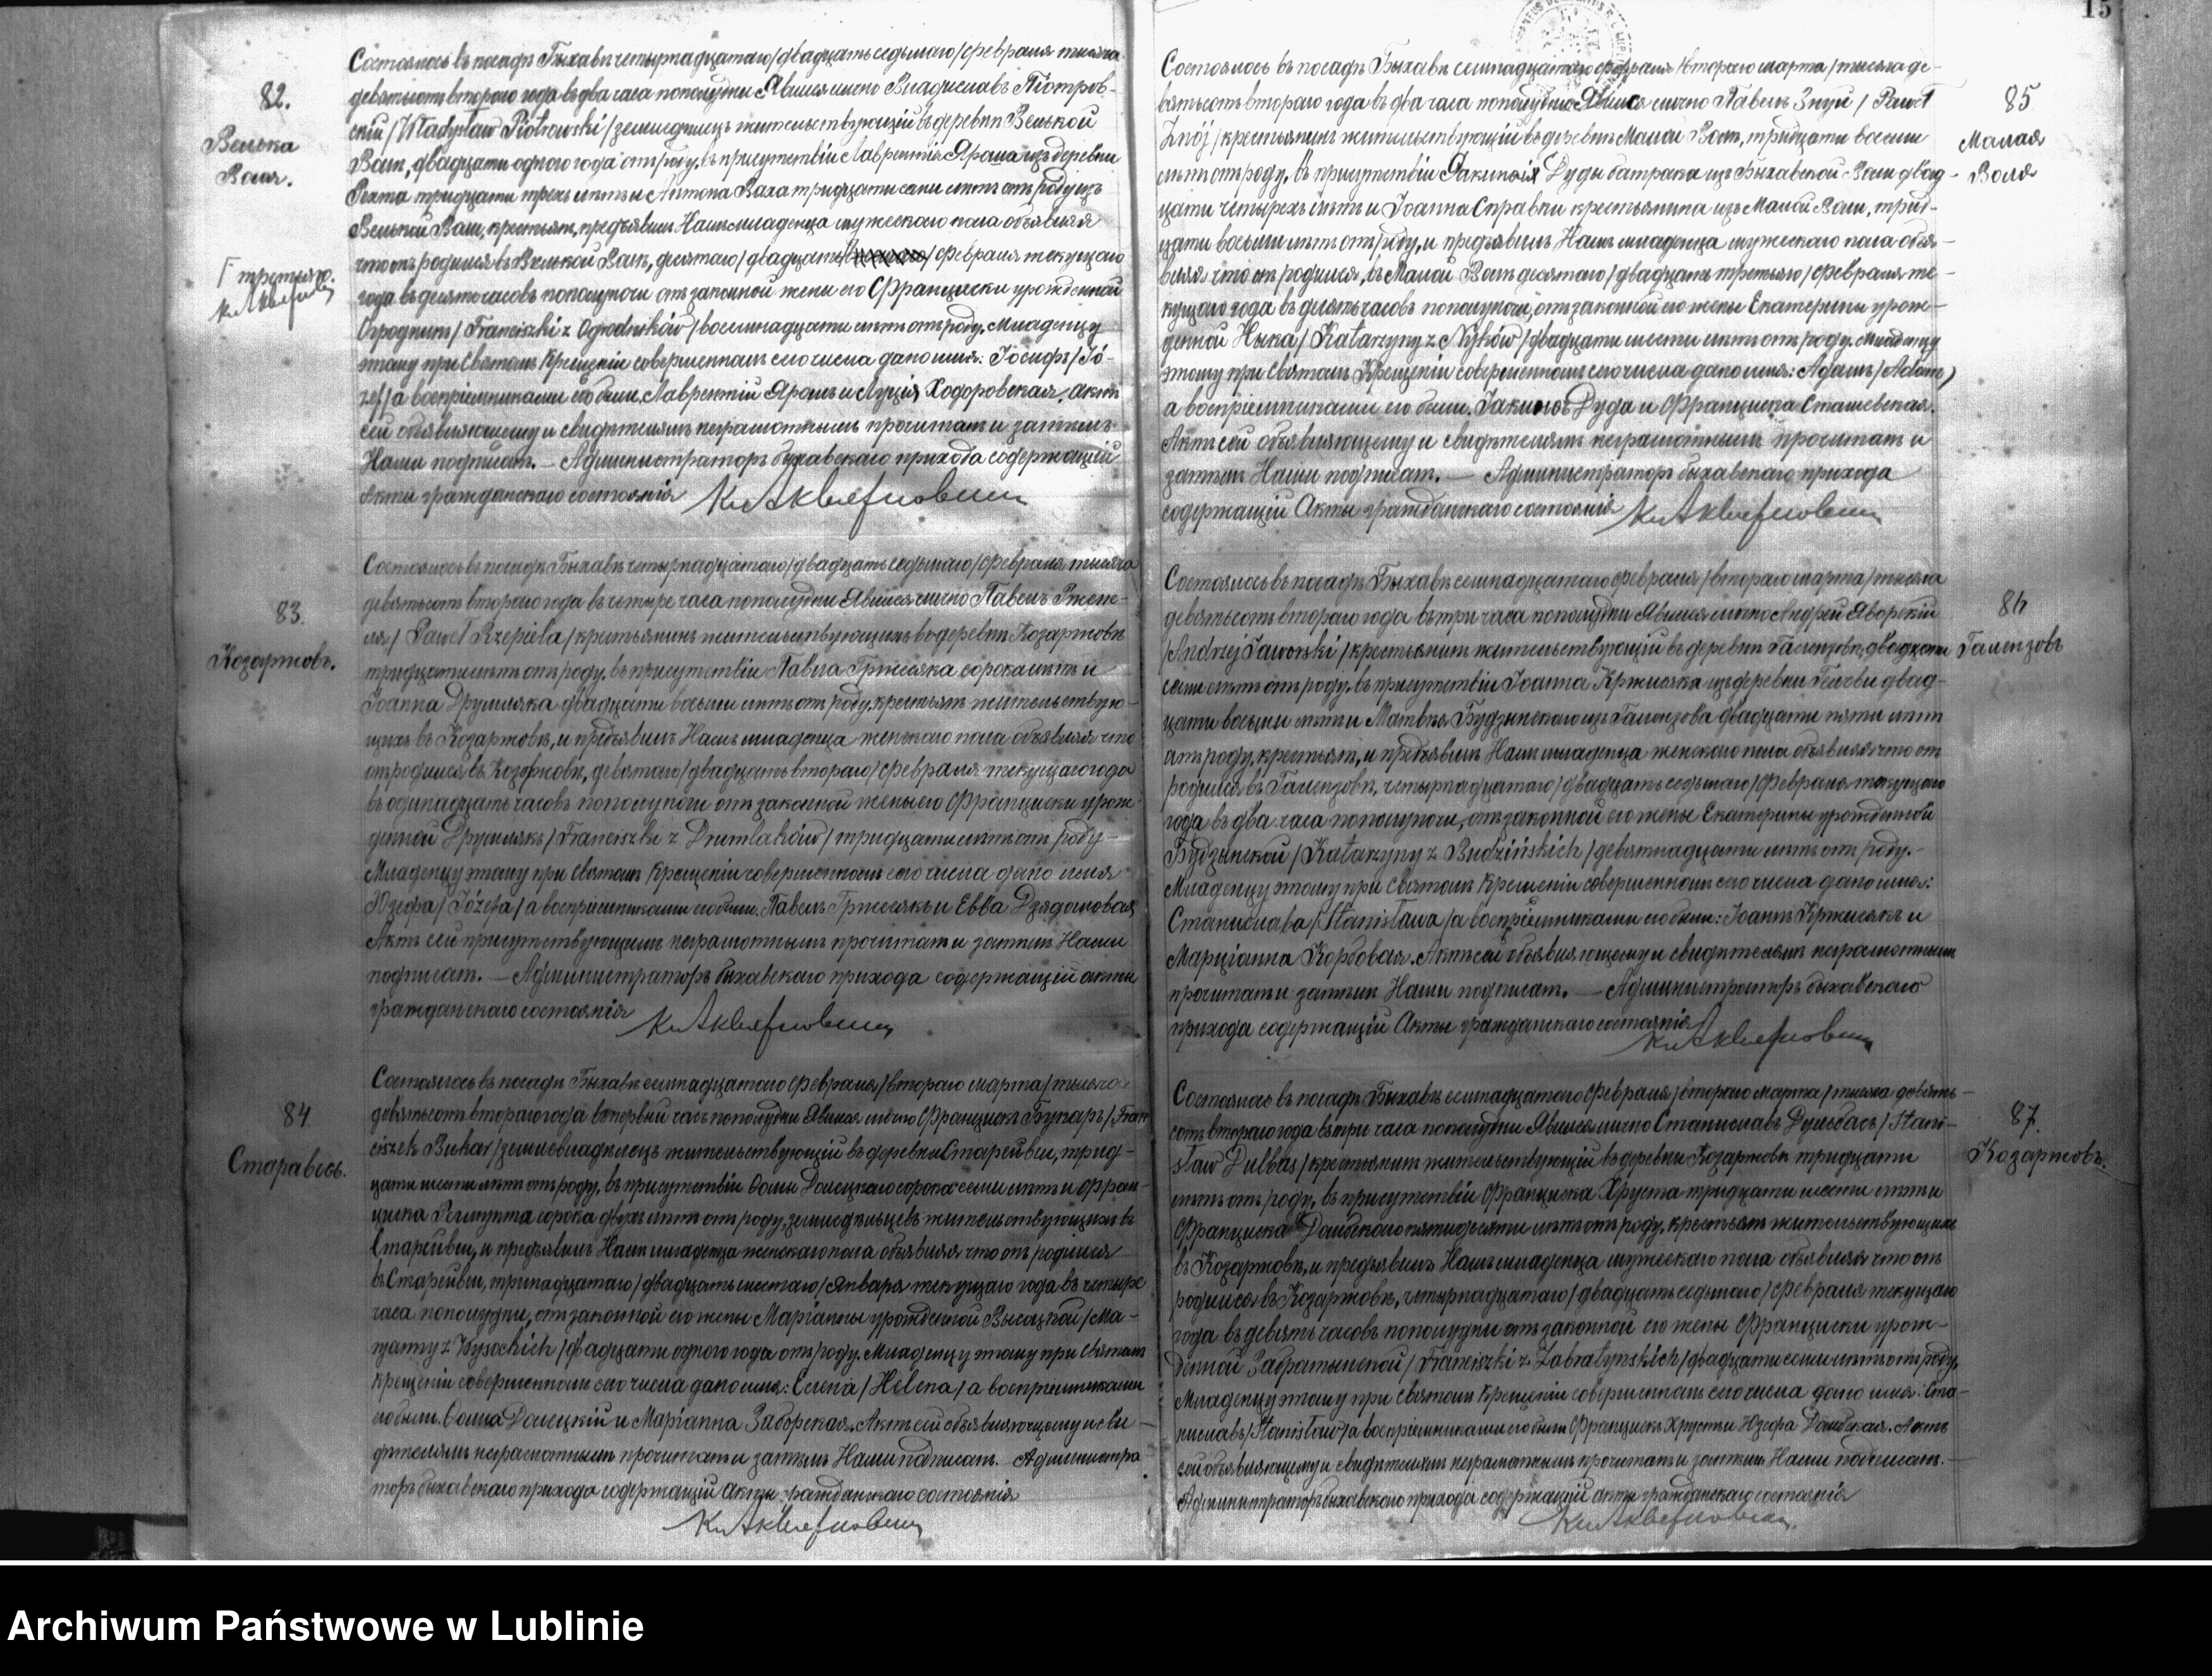 15
82.
Велька
Воля.
Состоялось въ посадѣ Быхавѣ четырнадцатаго /двадцать седьмаго/ февраля тысяча
девятьсотъ втораго года въ два часа пополудни Явился лично Владиславъ Піотров-
скій /Władysław Piotrowski/ земледѣлецъ жительствующій въ деревни Велькой
Воли, двадцати одного года отъ роду, въ присутствіи Лаврентія Яроша изъ деревни
тридцати трехъ лѣтъ и Антона тридцати семи лѣтъ отъ роду изъ
Велькой Воли, крестьянъ, и предъявилъ Намъ младенца мужескаго пола объявляя
что онъ родился въ Велькой Воли, десятаго /двадцать / февраля текущаго
Г третьяго.
года въ десять часовъ пополуночи отъ законной жены его Франциски урожденной
Огродникъ /Franciszki z Ogrodników/ восемнадцати лѣтъ отъ роду. Младенцу
этому при Святомъ Крещеніи совершенномъ сего числа дано имя: Іосифъ /Jó-
zef/ а воспріемниками его были Лаврентій Ярошъ и Луція Ходоровская. Актъ
сей объявляющему и свидѣтелямъ неграмотнымъ прочитанъ и затѣмъ
Нами подписанъ. — Администраторъ быхавскаго прихода содержащій
Акты гражданскаго состоянія
83.
Козаржовъ.
Состоялось въ посадѣ Быхавѣ четырнадцатаго /двадцать седьмаго/ февраля тысяча
девятьсотъ втораго года въ четыре часа пополудни Явился лично Павелъ Ржепе-
ля /Paweł Rzepiela/ крестьянинъ жительствующій въ деревни Козаржовѣ
тридцати лѣтъ отъ роду, въ присутствіи Павла Гржесяка сорока лѣтъ и
Іоанна Друмляка двадцати восьми лѣтъ отъ роду, крестьянъ жительствую-
щихъ въ Козаржовѣ, и предъявилъ Намъ младенца женскаго пола объявляя что
онъ родился въ Козаржовѣ, девятаго /двадцать втораго/ февраля текущаго года
въ одинадцать часовъ пополуночи отъ законной жены его Франциски урож-
денной Друмлякъ /Franciszki z Drumlaków/ тридцати лѣтъ отъ роду —
Младенцу этому при Святомъ Крещеніи совершенномъ сего числа дано имя
Юзефа /Józefa/ а воспріемниками его были: Павелъ Гржесякъ и Евва Дзядоновая
Актъ сей присутствующимъ неграмотнымъ прочитанъ и затѣмъ Нами
подписанъ. — Администраторъ быхавскаго прихода содержащій акты
гражданскаго состоянія
84.
Старавесь.
Состоялось въ посадѣ Быхавѣ семнадцатаго Февраля /втораго марта/ тысяча
девятьсотъ втораго года въ первый часъ пополудни Явился лично Францискъ Бухаръ /Fran-
ciszek Buhar/ земледѣлецъ жительствующій въ деревни Старейвси, трид-
цати шести лѣтъ отъ роду, въ присутствіи Ѳомы Долецкаго сорока семи лѣтъ и Фран-
циска сорока двухъ лѣтъ отъ роду, земледѣльцевъ жительствующихъ въ
Старейвси, и предъявилъ Намъ младенца женскаго пола объявляя что онъ родился
въ Старейвси, тринадцатаго /двадцать шестаго/ Января текущаго года въ четыре
часа пополудни, отъ законной его жены Маріанны урожденной Высоцкой /Ma-
ryanny z Wysockich/ двадцати одного года отъ роду. Младенцу этому при Святомъ
Крещеніи совершенномъ сего числа дано имя: Елена /Helena/ а воспріемниками
его были. Ѳома Долецкій и Маріанна Заборская. Актъ сей объявляющему и сви-
дѣтелямъ неграмотнымъ прочитанъ и затѣмъ Нами подписанъ. Администра
торъ быхавскаго прихода содержащій Акты гражданскаго состоянія
85
Малая
Воля
Состоялось въ посадѣ Быхавѣ семнадцатаго февраля /втораго марта/ тысяча де-
вятьсотъ втораго года въ два часа пополудни Явился лично Павелъ Знуй /Paweł
Znój/ крестьянинъ жительствующій въ деревни Малой Воли, тридцати восьми
лѣтъ отъ роду, въ присутствіи Іакинѳа Дуды батрака изъ Быхавской Воли двад-
цати четырехъ лѣтъ и Іоанна Справки крестьянина изъ Малой Воли, трид-
цати восьми лѣтъ отъ роду, и предъявилъ Намъ младенца мужескаго пола объя-
вляя что онъ родился, въ Малой Воли десятаго /двадцать третьяго/ февраля те-
кущаго года въ девять часовъ пополуночи, отъ законной его жены Екатерины урож-
денной Ныка /Katarzyny z Nyków/ двадцати шести лѣтъ отъ роду. Младенцу
этому при Святомъ Крещеніи совершенномъ сего числа дано имя: Адамъ /Adam/
а воспріемниками его были. Іакинѳъ Дуда и Франциска Сташевская.
Актъ сей объявляющему и свидѣтелямъ неграмотнымъ прочитанъ и
затѣмъ Нами подписанъ. — Администраторъ быхавскаго прихода
содержащій Акты гражданскаго состоянія
86
Галензовъ
Состоялось въ посадѣ Быхавѣ семнадцатаго февраля /втораго марта/ тысяча
девятьсотъ втораго года въ три часа пополудни Явился лично Андрей Яворскій
/Andrzej Jaworski/ крестьянинъ жительствующій въ деревни Галензовѣ, двадцати
семи лѣтъ отъ роду, въ присутствіи Іоанна Кржисяка изъ деревни двад-
цати восьми лѣтъ и Матвѣя Будзынскаго изъ Галензова двадцати пяти лѣтъ
отъ роду, крестьянъ, и предъявилъ Намъ младенца женскаго пола объявляя что онъ
родился въ Галензовѣ, четырнадцатаго /двадцать седьмаго/ февраля текущаго
года въ два часа пополуночи, отъ законной его жены Екатерины урожденной
Будзынской /Katarzyny z Budzińskich/ девятнадцати лѣтъ отъ роду.-
Младенцу этому при Святомъ Крещеніи совершенномъ сего числа дано имя:
Станислава /Stanisława/ а воспріемниками его были: Іоаннъ Кржисякъ и
Марціанна Корбовая. Актъ сей объявляющему и свидѣтелямъ неграмотнымъ
прочитанъ и затѣмъ Нами подписанъ. — Администраторъ быхавскаго
прихода содержащій Акты гражданскаго состоянія
87.
Козаржовъ.
Состоялось въ посадѣ Быхавѣ семнадцатаго Февраля /втораго марта/ тысяча девять-
сотъ втораго года въ три часа пополудни Явился лично Станиславъ Дульбасъ /Stani-
sław Dulbas/ крестьянинъ жительствующій въ деревни Козаржовѣ тридцати
лѣтъ отъ роду, въ присутствіи Франциска Хруста тридцати шести лѣтъ и
Франциска пятидесяти лѣтъ отъ роду, крестьянъ жительствующихъ
въ Козаржовѣ, и предъявилъ Намъ младенца мужескаго пола объявляя что онъ
родился въ Козаржовѣ, четырнадцатаго /двадцать седьмаго/ февраля текущаго
года въ девять часовъ пополудни отъ законной его жены Франциски урож-
денной Забратынской /Franciszki z Zabratyńskich/ двадцати семи лѣтъ отъ роду.
Младенцу этому при Святомъ Крещеніи совершенномъ сего числа дано имя: Ста-
ниславъ /Stanisław/ а воспріемниками его были Францискъ Хрустъ и Юзефа Актъ
сей объявляющему и свидѣтелямъ неграмотнымъ прочитанъ и затѣмъ Нами подписанъ.-
Администраторъ быхавскаго прихода содержащій акты гражданскаго состоянія
Archiwum Państwowe w Lublinie